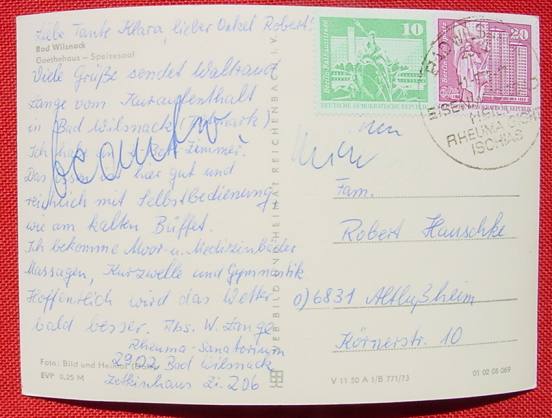 Liebe Tante Klara, lieber Onkel Robert!
Bad Wilsnack
Goethehaus – Speisesaal
Viele Grüße sendet Waltraud
Lange vom Kuraufenthalt
in Bad Wilsnack
Ich habe ein Bett Zimmer.
Das Essen ist hier gut und
reichlich mit Selbstbedienung
wie am kalten Büffet.
Ich bekomme Moor- u. Medizinbäder
Massagen, Kurzwelle und Gymnastik
Hoffentlich wird das Wetter
bald besser. Abs. W. Lange
Rheuma-Sanatorium
2902 Bad Wilsnack
Zetkinhaus Zi. 206
Foto: Bild und Heimat
EVP 0,25 M
VEB BILD UND HEIMAT REICHENBACH
10
DEUTSCHE DEMOKRATISCHE REPUBLIK
20
BAD WILSNACK
EISEN
RHEUMA
ISCHIAS
Fam.
Robert Hauschke
6831 Altlußheim
Körnerstr. 10
V 11 50 A 1/B 771/75
01 02 05 069